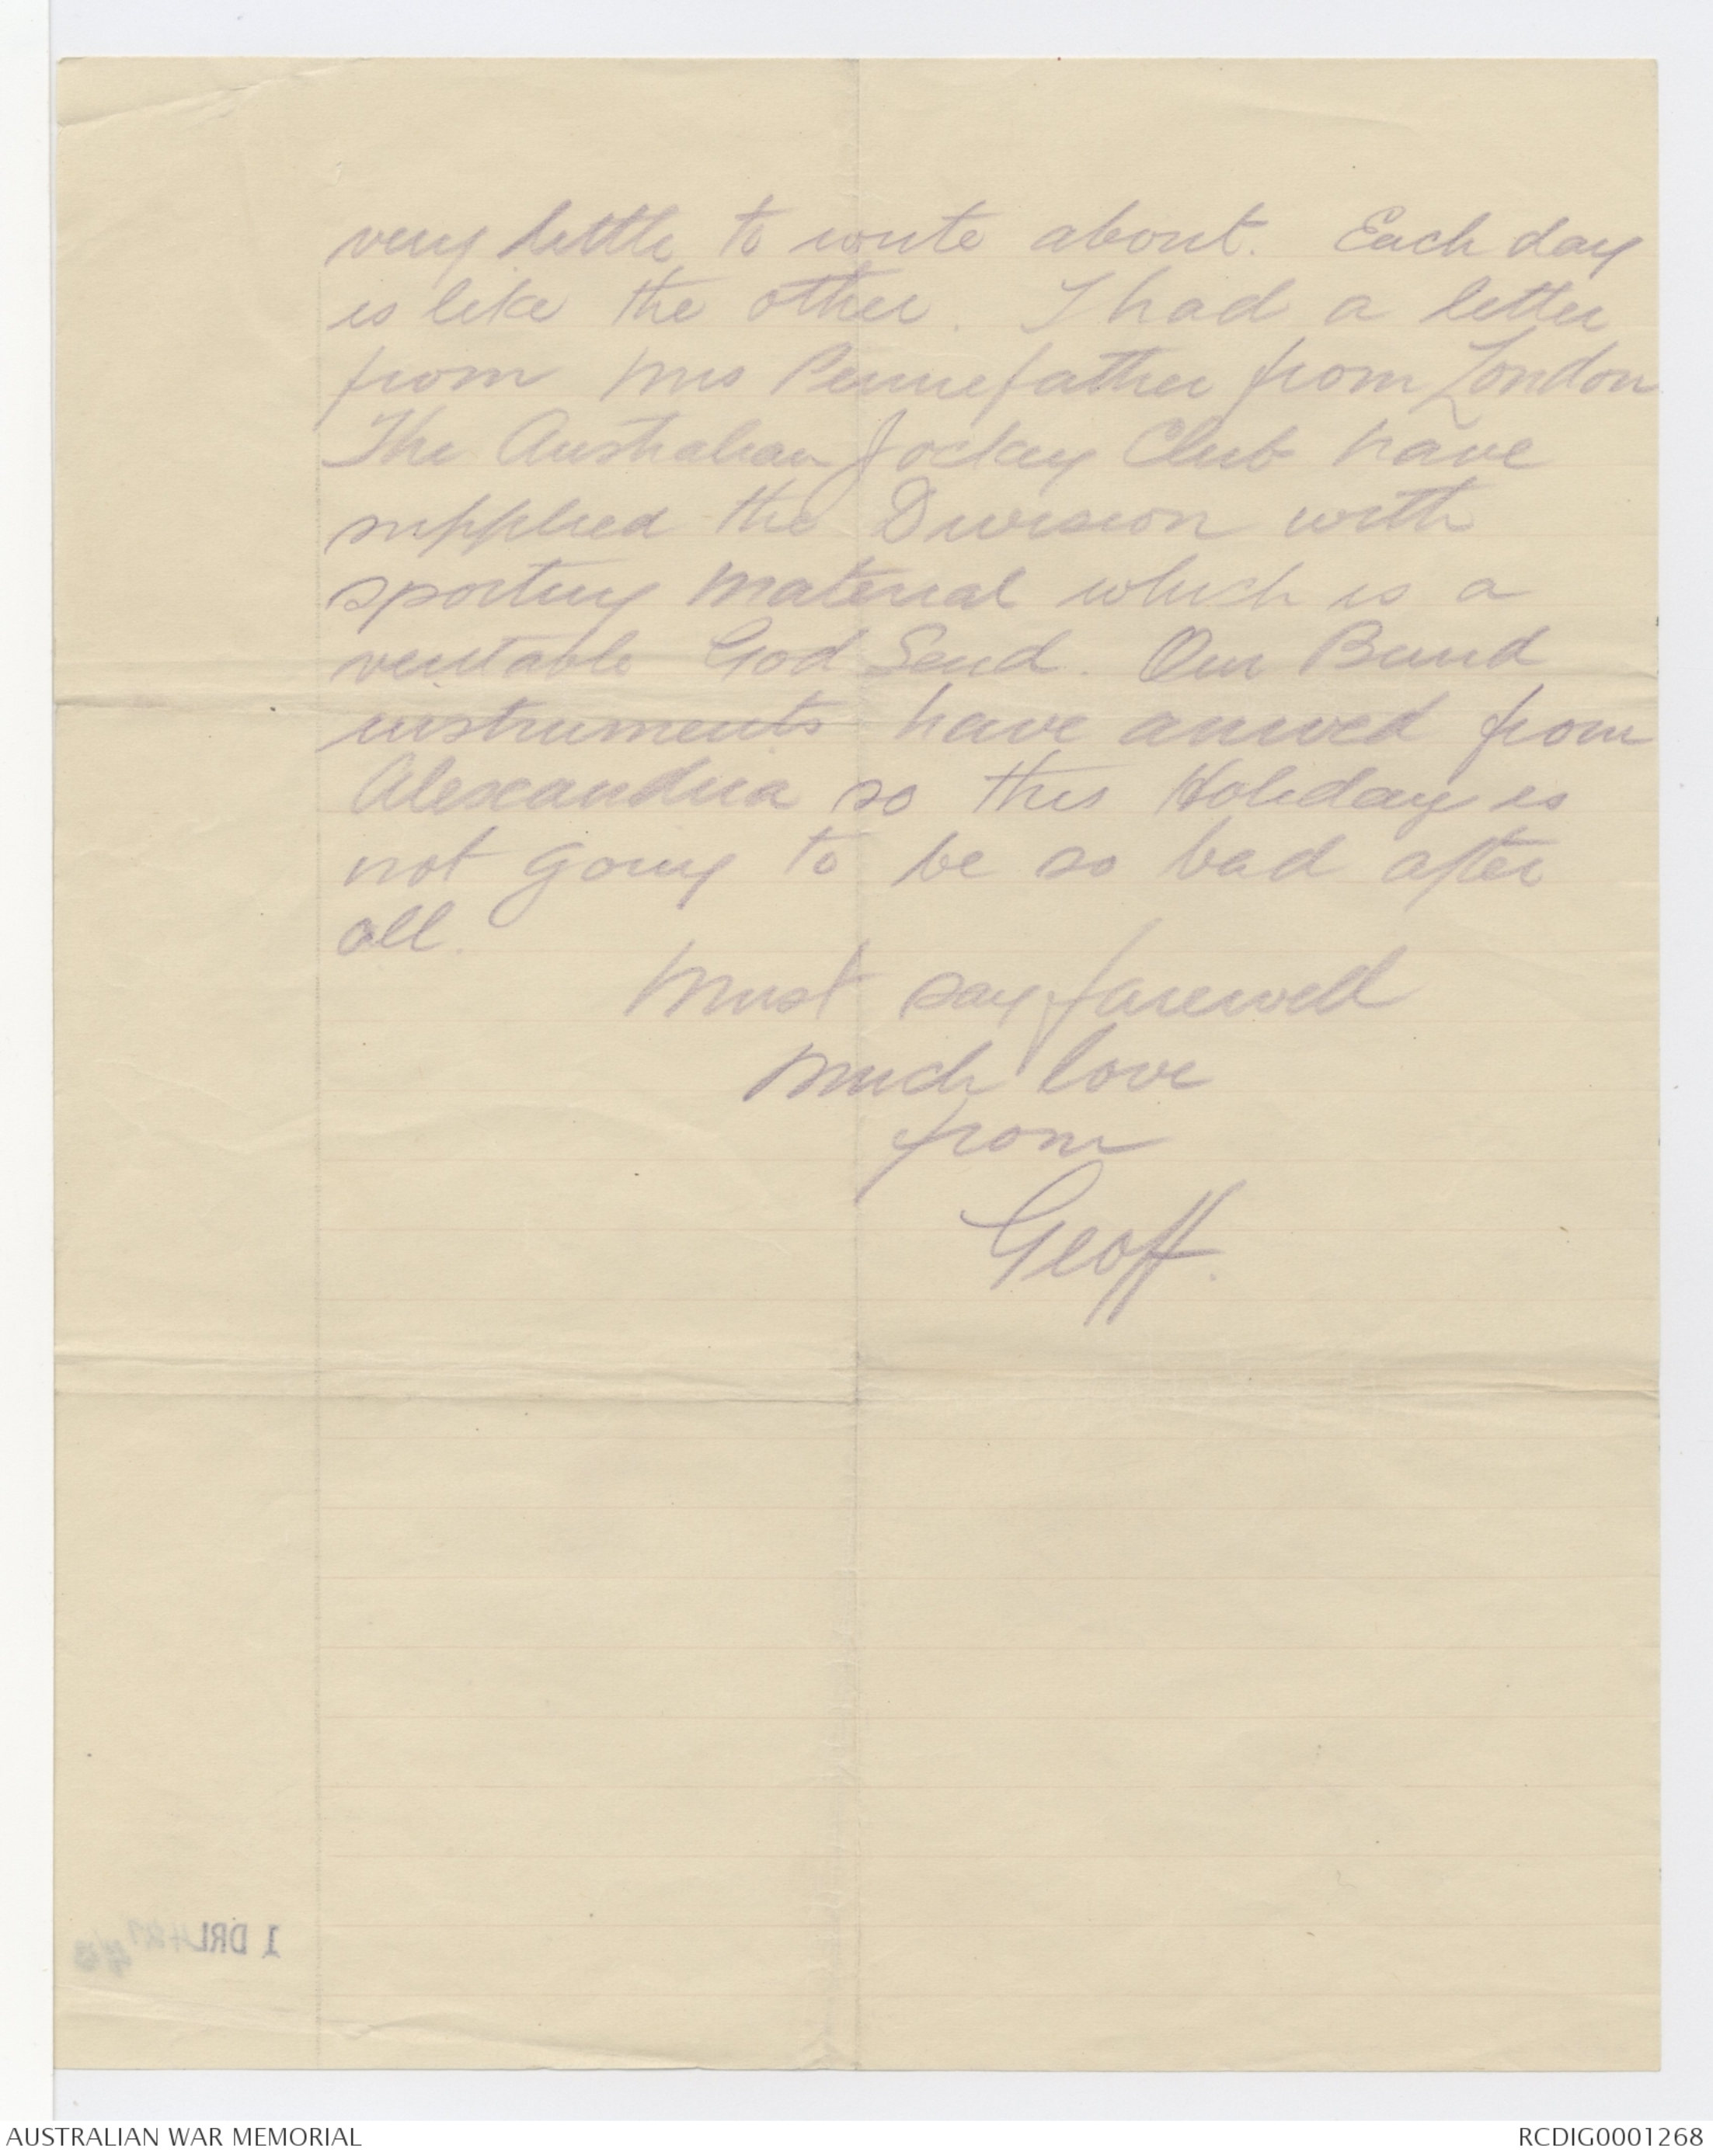 very little to write about. Each day
is like the other. I had a letter
from Mrs Pennefather from London
The Australian Jockey Club have
supplied the Division with
sporting material which is a
veritable God Send. Our Band
instruments have arrived from
Alexandria so this Holiday is
not going to be so bad after
all.
Must say farewell
Much love
from
Geoff.
1 DRL
AUSTRALIAN WAR MEMORIAL
RCDIG0001268